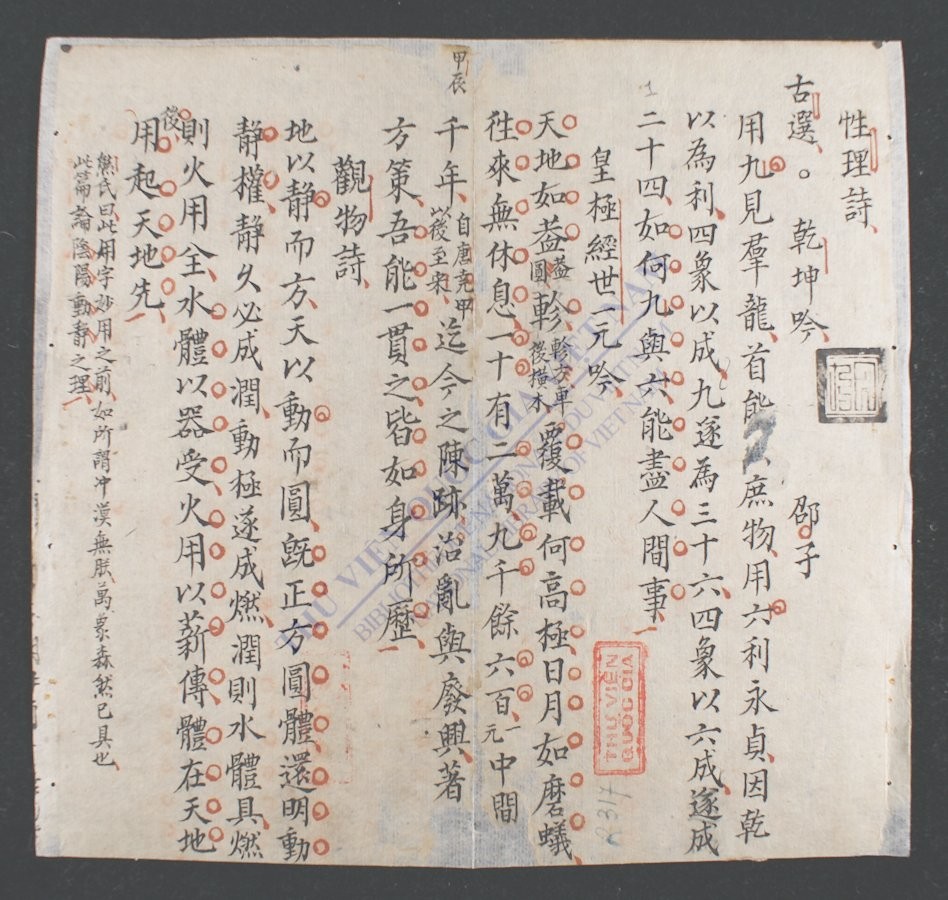 性理詩
古選。乾坤吟 邵子
用九見羣龍首能庶物用六利永貞因乾
以為利四象以成九遂為三十六四象以六成遂成
二十四如何九與六能盡人間事
皇極經世一元吟
天地如葢葢圓軫軫方車後橫木覆載何高極日月如磨蟻
徃來無休息一十有二萬九千餘六百一元中間
甲辰
千年自唐尭甲以後至宋迄今之陳跡治亂與廢興著
方策吾能一貫之皆如身所歷
觀物詩
地以静而方天以動而圓旣正方圓體還明動
静權静久必成潤動極遂成燃潤則水體具燃
則火用全水體以器受火用以薪傳體在天地
後用起天地先
熊氏曰此用字妙用之前如所謂冲漠無朕萬象森然已具也
此篇論陰陽動静之理
THU VIEN
QUOC GIA
THU VIEN QUOC GIA VIET NAM
NATIONAL LIBRARY OF VIETNAM